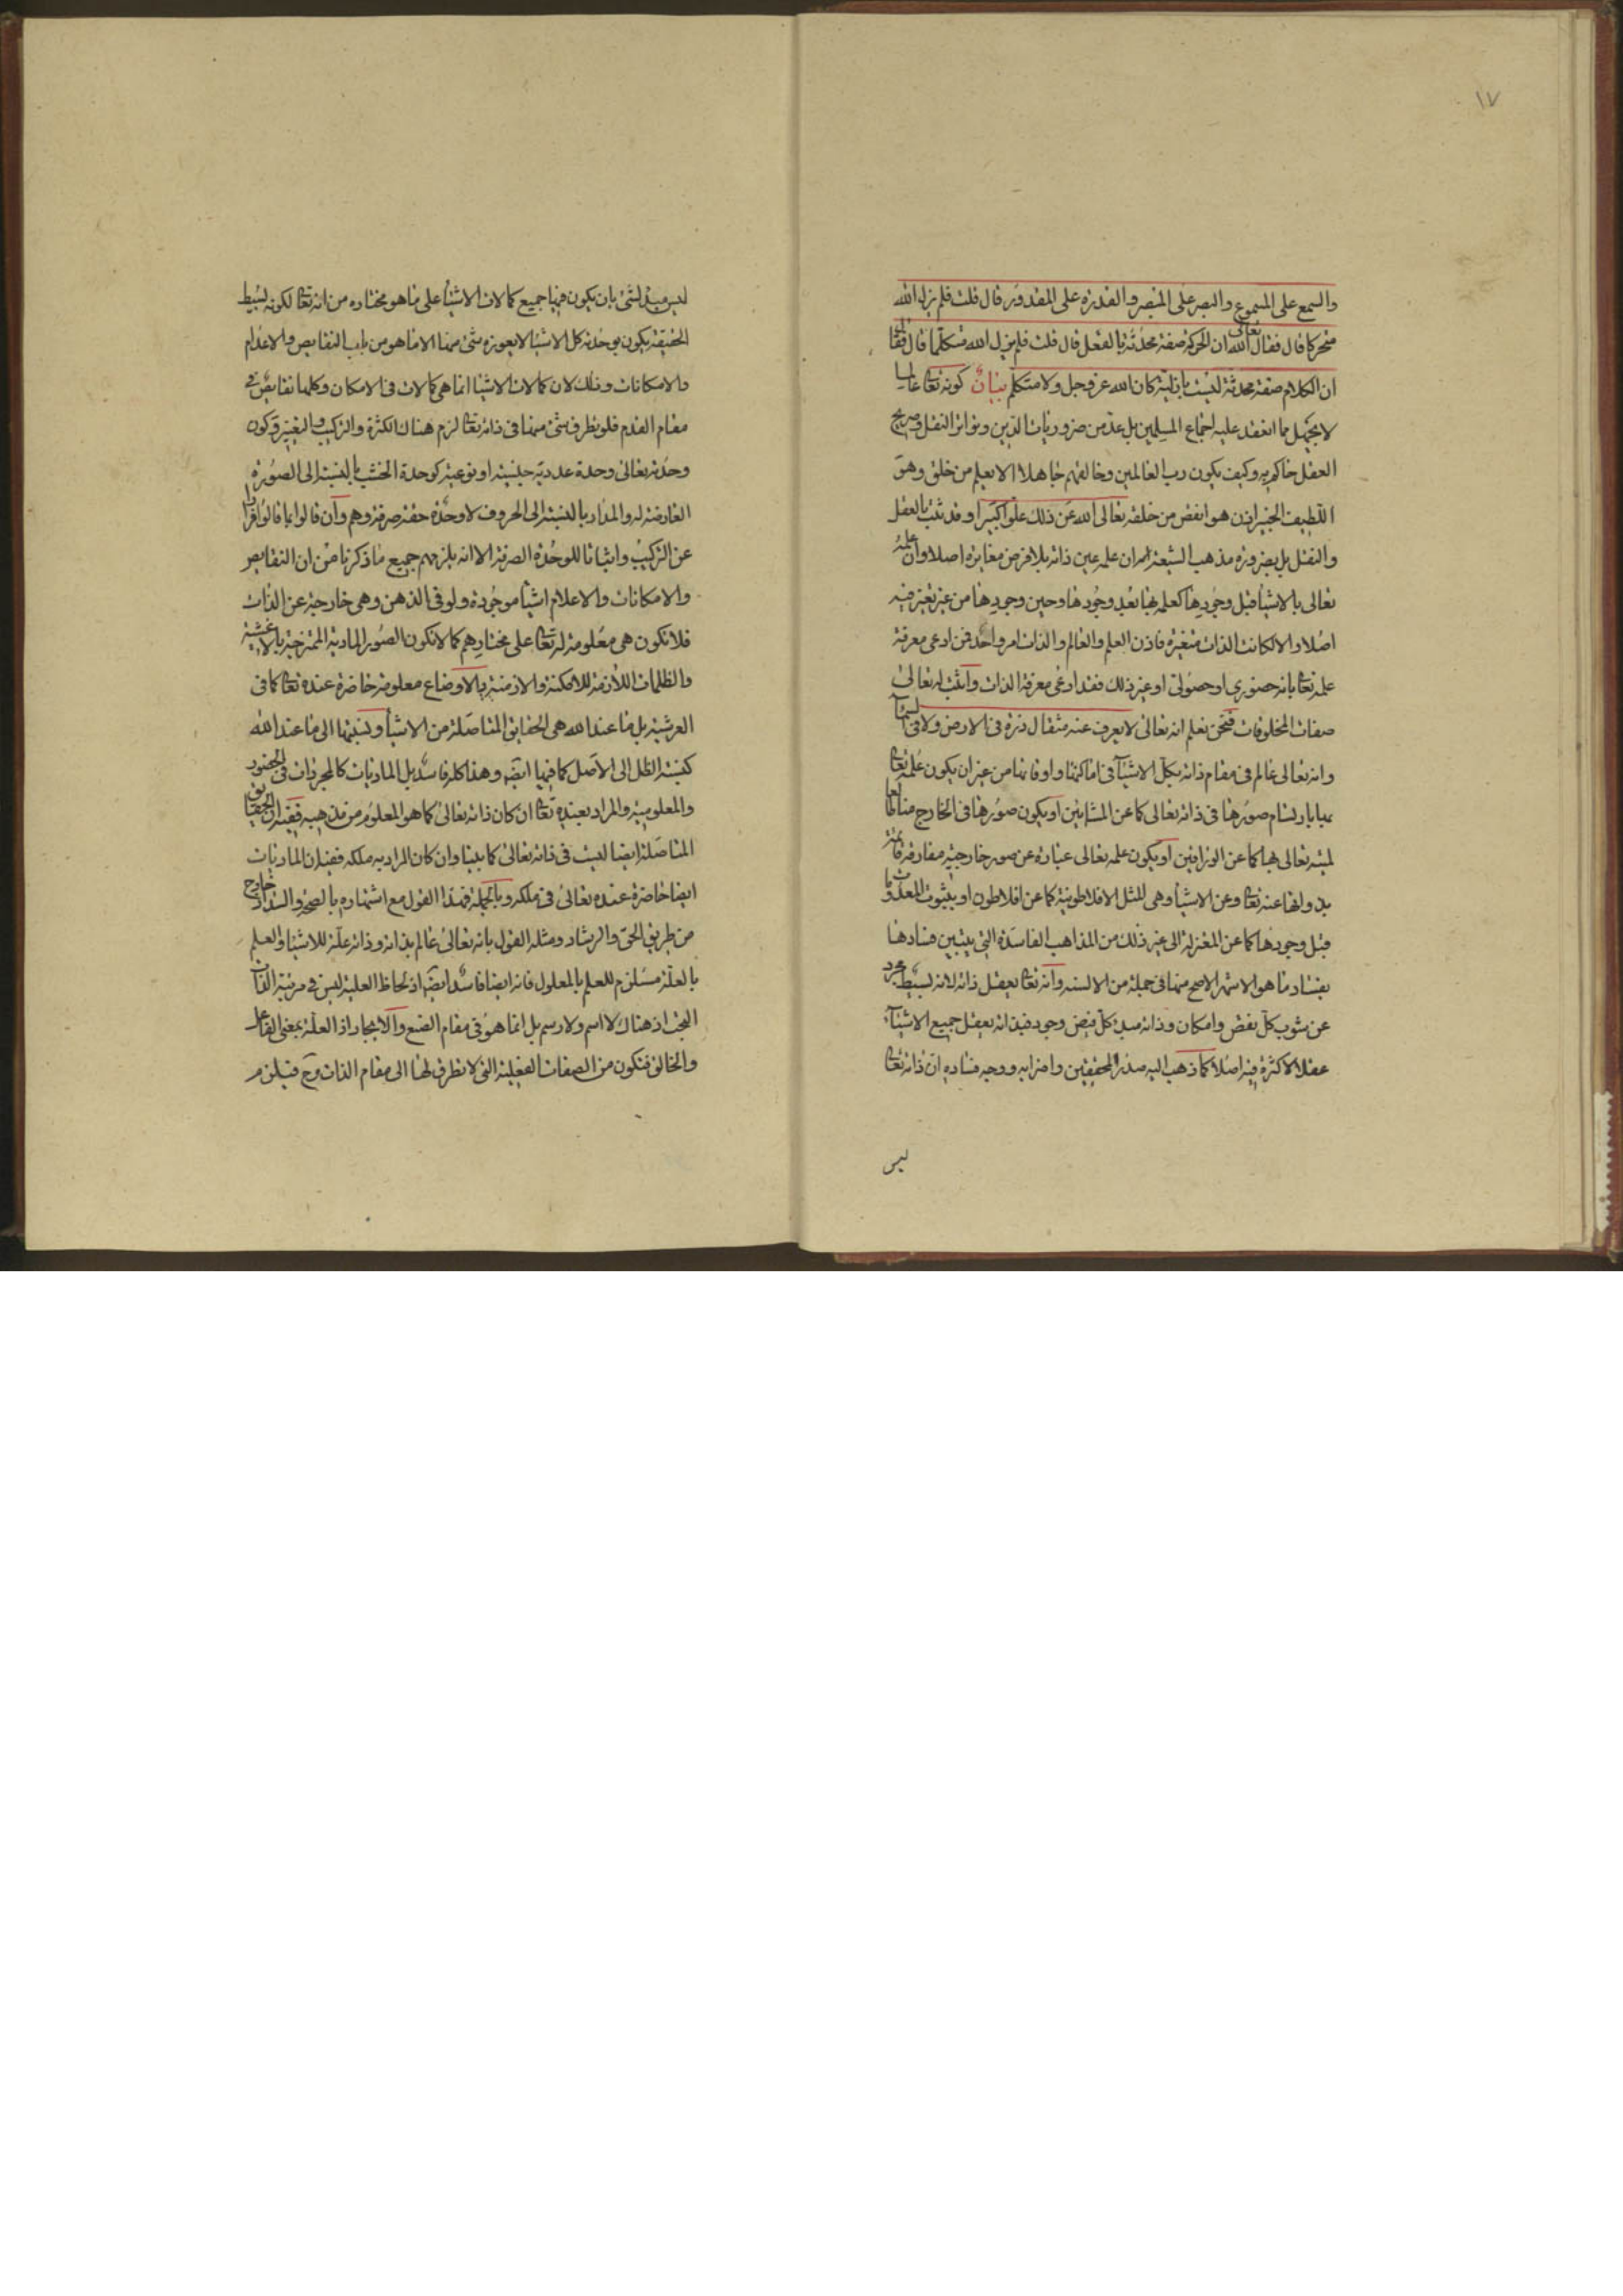 ١٧
والسمع على المسموع والبصر على المبصر والقدرة على المقدور قال قلت فلم يزل الله
متحركا قال فقال تعالى الله ان الحركة صفة محدثة بالفعل قال قلت فلم يزل الله متكلما قال فقال
ان الكلام صفة محدثة ليست بازلية كان الله عز وجل ولا متكلم بيان كونه تعا عالما
لا يجهل مما انعقد عليه اجماع المسلمين بل عد من ضروريات الدين وتواتر النقل وصريح
العقل حاكم به وكيف يكون رب العالمين وخالقهم جاهلا الا يعلم من خلق وهو
اللطيف الخبير اذن هو انقص من خلقه تعالى الله عن ذلك علوا كبيرا وقد ثبت بالعقل
والنقل بل بضرورة مذهب الشيعة ان علمه عين ذاته بلا فرض مغايرة اصلا وان علمه
تعالى بالاشيأ قبل وجودها كعلمه بها بعد وجودها وحين وجودها من غير تغير فيه
اصلا والا لكانت الذات متغيرة فاذن العلم والعالم والذات امر واحد فمن ادعى معرفة
علمه تعا بانه حضوري او حصولى او غير ذلك فقد ادعى معرفة الذات واثبت له تعالى
صفات المخلوقات فنحن نعلم انه تعالى لا يعزب عنه مثقال ذرة فى الارض ولا فى السمآ
وانه تعالى عالم فى مقام ذاته بكل الاشيآء فى اماكنها واوقاتها من غير ان يكون علمه تعا
بها بارتسام صورها فى ذاته تعالى كما عن المشائين او يكون صورها فى الخارج مناط
لميته تعالى بها كما عن الرواقيين او يكون علمه تعالى عبارة عن صور خارجية مفارقة قائمة
بذواتها عنه تعا وعن الاشيأ وهى المثل الافلاطونية كما عن افلاطون او بثبوت المعدومات
قبل وجودها كما عن المعتزلة الى غير ذلك من المذاهب الفاسدة التى يتبين فسادها
بفساد ما هو الاشهر الاصح منها فى جملة من الالسنه وانه تعا يعقل ذاته لانه بسيط مجرد
عن شوب كل نقص وامكان وذاته مبدء كل فيض وجود فيذاته يعقل جميع الاشيآء
عقلا لا كثرة فيه اصلا كما ذهب اليه صدر المحققين واضرابه ووجه فساده ان ذاته تعا
ليس
ليس مبدء لشئ بان يكون فيها جميع كمالات الاشيأ على ما هو مختاره من انه تعا لكونه بسيط
الحقيقة يكون بوحدته كل الاشيا لا يعوزه شئ منها الا ما هو من باب النقايص والاعدام
والامكانات وذلك لان كمالات الاشيا انما هى كمالات فى الامكان وكلها نقايص فى
مقام القدم فلو نظرف شئ منها فى ذاته تعا لزم هناك الكثرة والتركيب والتغير وكون
وحدته تعالى وحدة عددية جنسية او نوعية كوحدة الخشب بالنسبة الى الصورة
العارضة له والمداد بالنسبة الى الحروف لا وحدة حقة صرفة وهم وان قالوا بما قالوا فرارا
عن التركيب واثباتا للوحدة الصرفة الا انه يلزمهم جميع ما ذكرنا من ان النقايص
والامكانات والاعلام اشيأ موجودة ولو فى الذهن وهى خارجة عن الذات
فلا تكون هى معلومة له تعا على مختارهم كما لا تكون الصور المادية الممتزجة بالاغشية
والظلمات اللازمة للامكنة والازمنة والاوضاع معلومة حاضرة عنده تعا كما فى
العرشية بل ما عند الله هى الحقايق المتاصلة من الاشيأ ونسبتها الى ما عند الله
كنسبة الظل الى الاصل كما فيها ايضا وهذا كله فاسد بل الماديات كالمجردات فى الحضور
والمعلومية والمراد بعنديته تعا ان كان ذاته تعالى كما هو المعلوم من مذهبه ففيه ان الحقايق
المتاصلة ايضا ليست فى ذاته تعالى كما بينا وان كان المراد به ملكه ففيه ان الماديات
ايضا حاضرة عنده تعالى فى ملكه وبالجملة فهذا القول مع اشتهاره بالصحة والسداد خارج
عن طريق الحق والرشاد ومثله القول بانه تعالى عالم بذاته وذاته علة للاشيا والعلم
بالعلة مستلزم للعلم بالمعلول فانه ايضا فاسد ايضا اذ لحاظ العلية ليس فى مرتبة الذات
البحت اذ هناك لا اسم ولا رسم بل انما هو فى مقام الصنع والايجاد اذ العلة بمعنى الفاعل
والخالق فتكون من الصفات الفعلية التى لا نظرف لها الى مقام الذات وح فيلزم